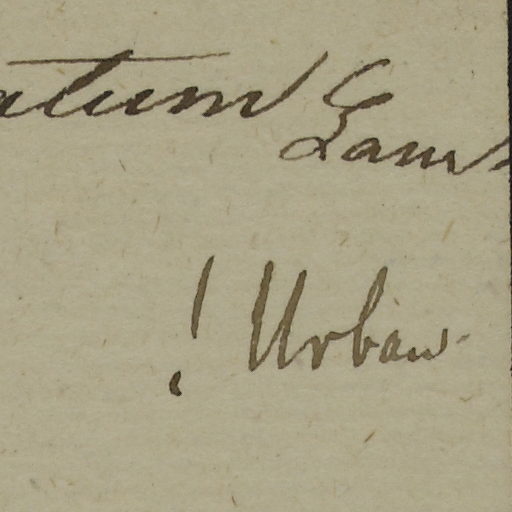 atum Lam
! Urban